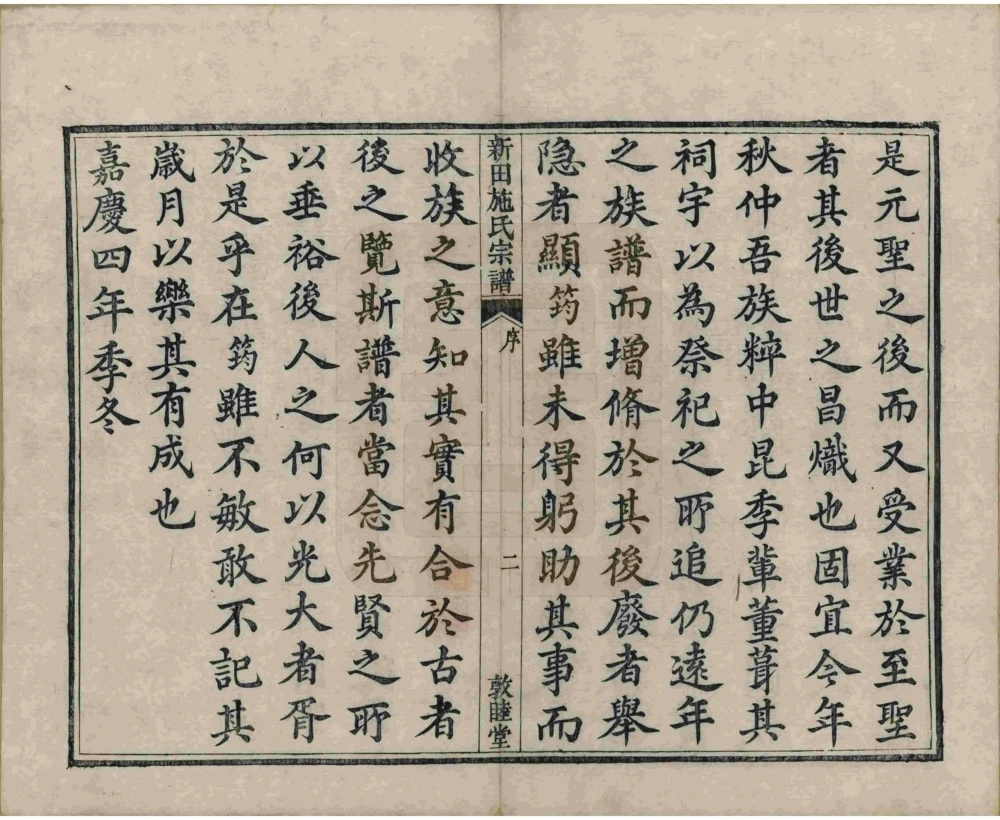 是元聖之後而又受業於至聖
者其後世之昌熾也固宜今年
秋仲吾族粹中昆季輩董葺其
祠宇以為祭祀之所追仍遠年
之族譜而增脩於其後廢者舉
隐者顯筠雖未得躬助其事而
新田施氏宗譜 序 二 敦睦堂
收族之意知其實有合於古者
後之覽斯譜者當念先賢之所
以垂裕後人之何以光大者胥
於是乎在筠雖不敏敢不記其
歲月以樂其有成也
嘉慶四年季冬